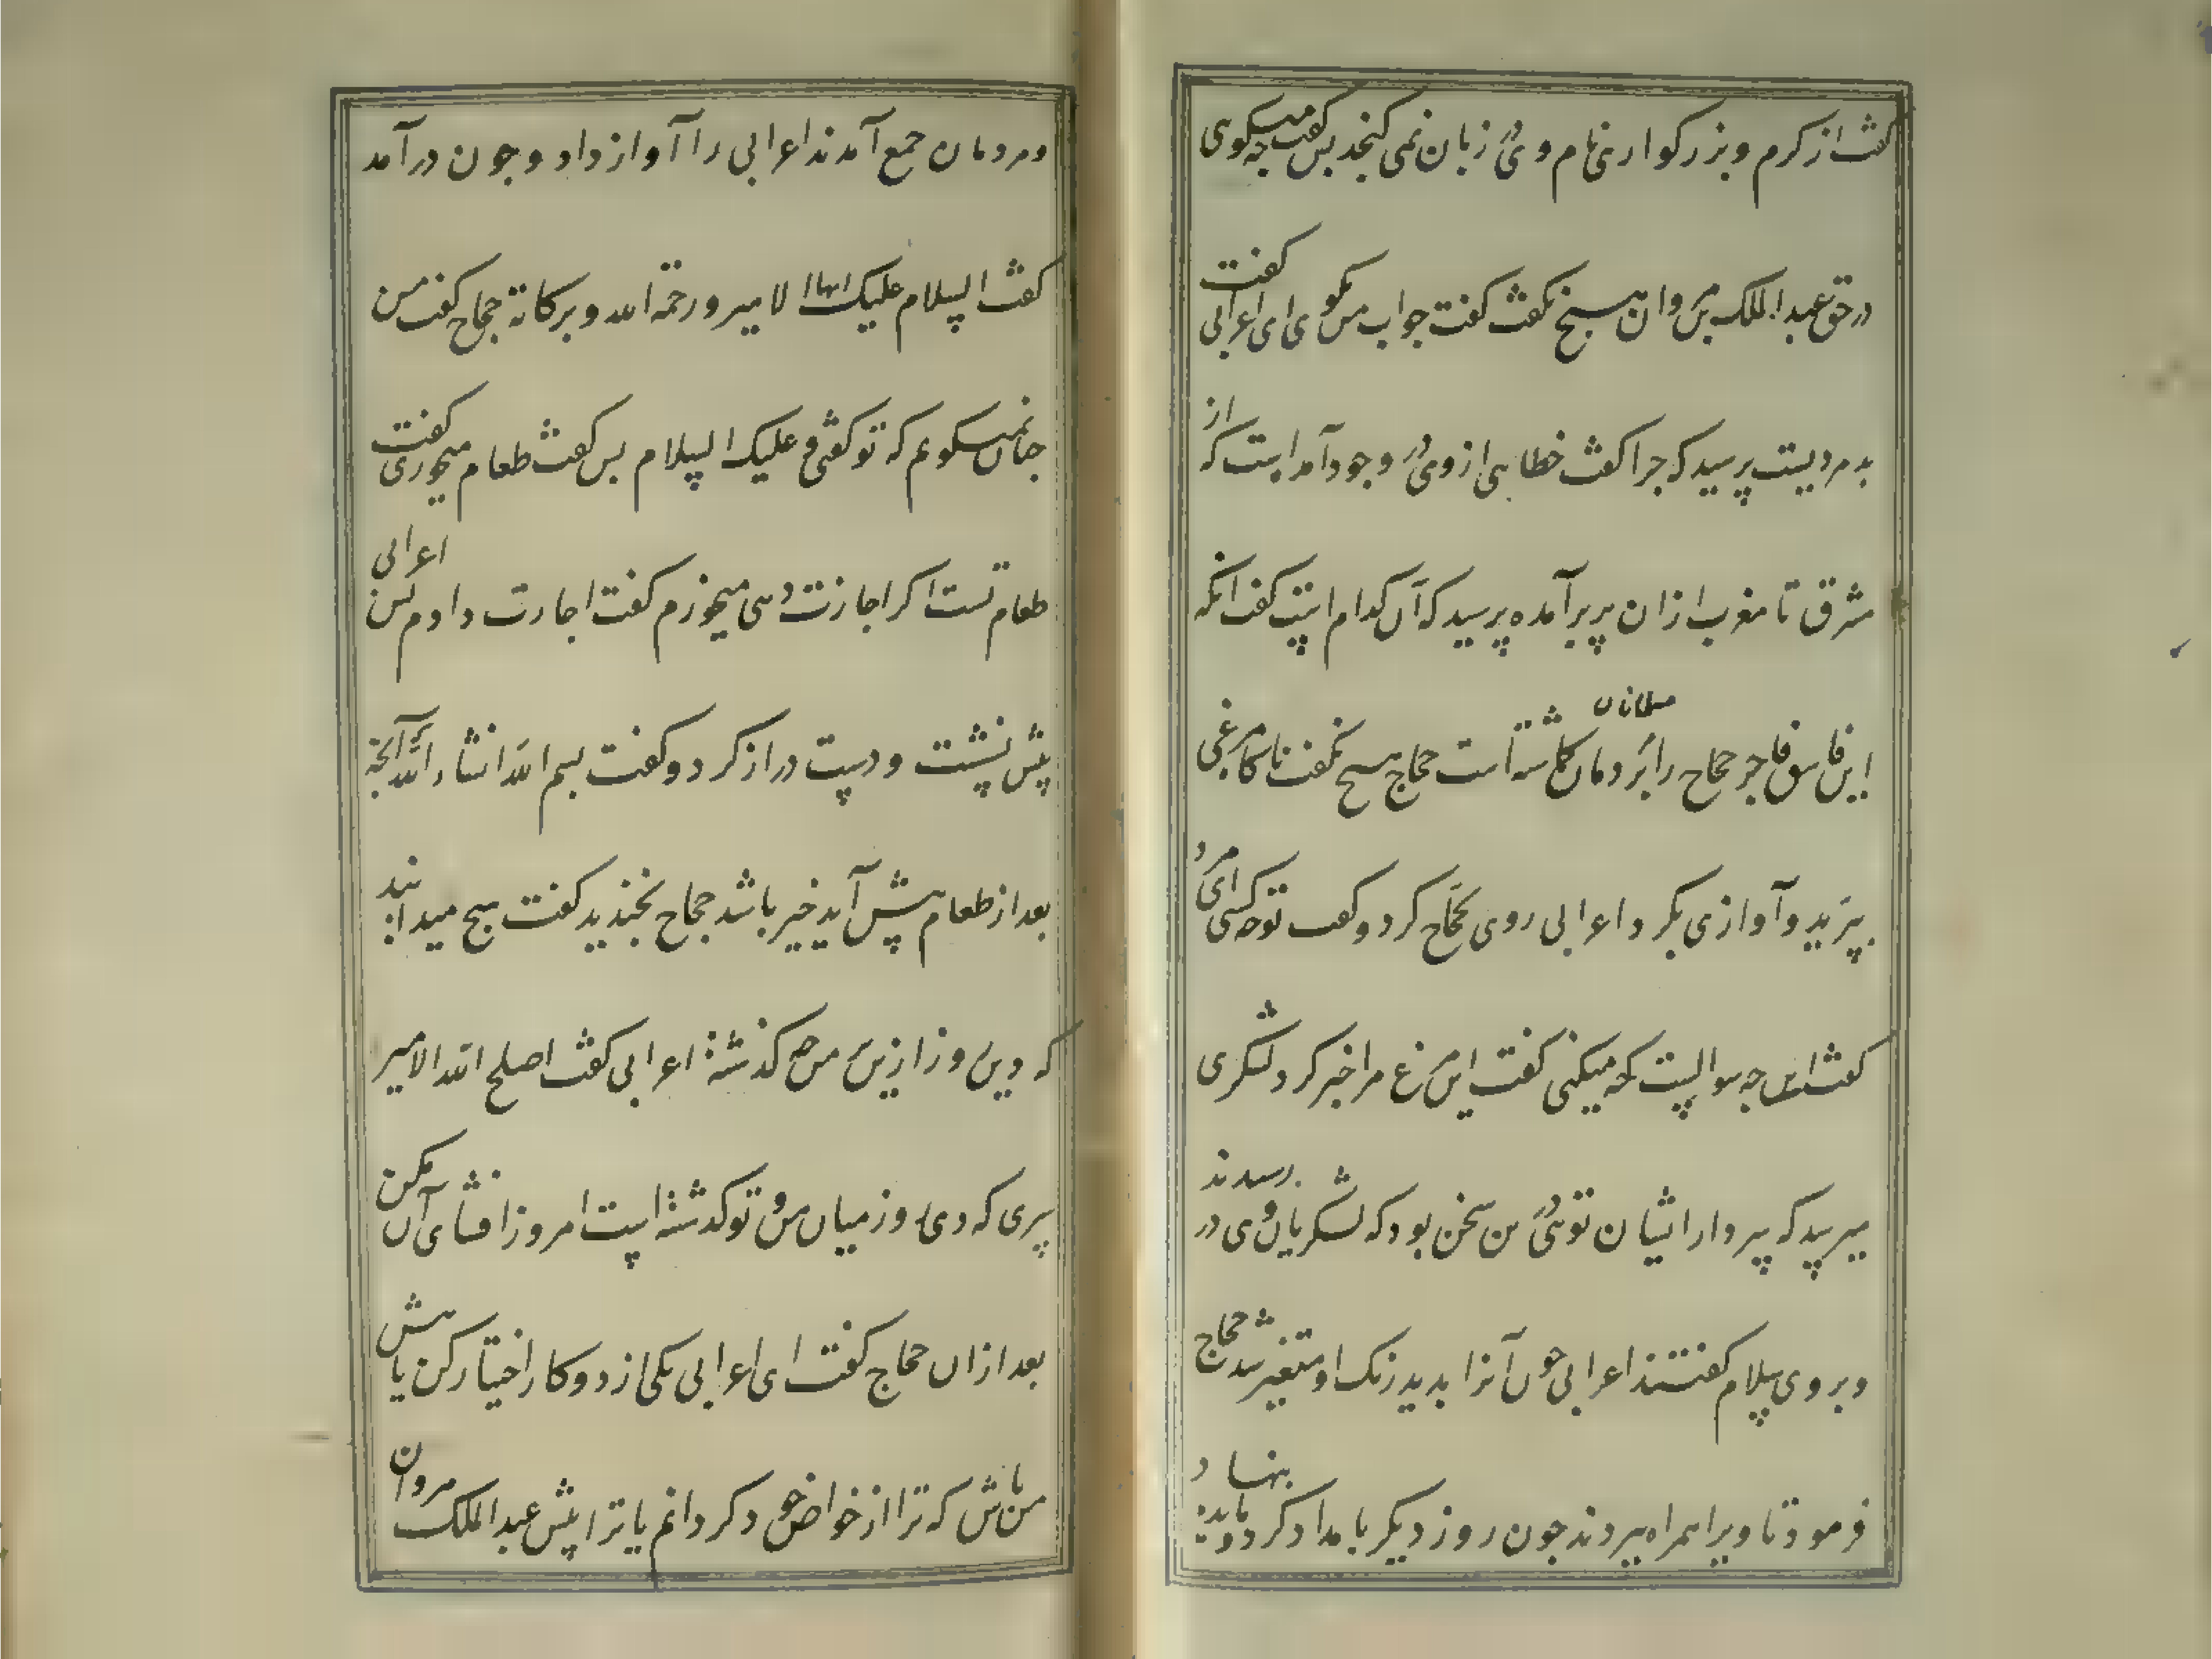 گفت از کرم و بزرگواری نام وی در زبان نمی گنجد پس گفت چه میگوی
در حق عبد الملک بن مروان هیچ نگفت گفت جواب من گوی ای اعرابی گفت
بد مردیست پرسید که چرا گفت خطایی از وی در وجود آمده است که از
مشرق تا مغرب ازان پر برآمده پرسید که آن کدام است گفت آنکه
این فاسق فاجر حجاج را بر مسلمانان گماشته است حجاج هیچ نگفت ناگاه مرغی
بپرید و آوازی بکرد اعرابی روی بحجاج کرد و گفت تو چه کسی ای مرد
گفت این چه سوالیست که میکنی گفت این مرغ مرا خبر کرد لشکری
میرسد که سردار ایشان توئی درین سخن بود که لشکریان وی در رسیدند
و بر وی سلام گفتند اعرابی چون آنرا بدید رنک او متغیر شد حجاج
فرمود تا ویرا همراه ببردند چون روز دیگر بامداد کرد و مایده بنهاد
و مردمان جمع آمدند اعرابی را آواز داد و چون درآمد
گفت السلام علیک ایها الامیر و رحمة الله و برکاته حجاج گفت من
چنان نمیگویم که تو گفتی و علیک السلام پس گفت طعام میخوری گفت
طعام تست اگر اجازت دهی میخورم گفت اجازت دادم پس اعرابی
پیش نشست و دست دراز کرد و گفت بسم الله انشاء الله آنچه
بعد از طعام پیش آید خیر باشد حجاج بخندید گفت هیچ میدانید
که دیروز ازین بر من چه گذشته اعرابی گفت اصلح الله الامیر
سری که دی روز میان من و تو گذشته است امروز افشای آن مکن
بعد ازان حجاج گفت ای اعرابی یکی از دو کار اختیار کن یا پیش
من باش که ترا از خواص خود گردانم یا ترا پیش عبد الملک مروان